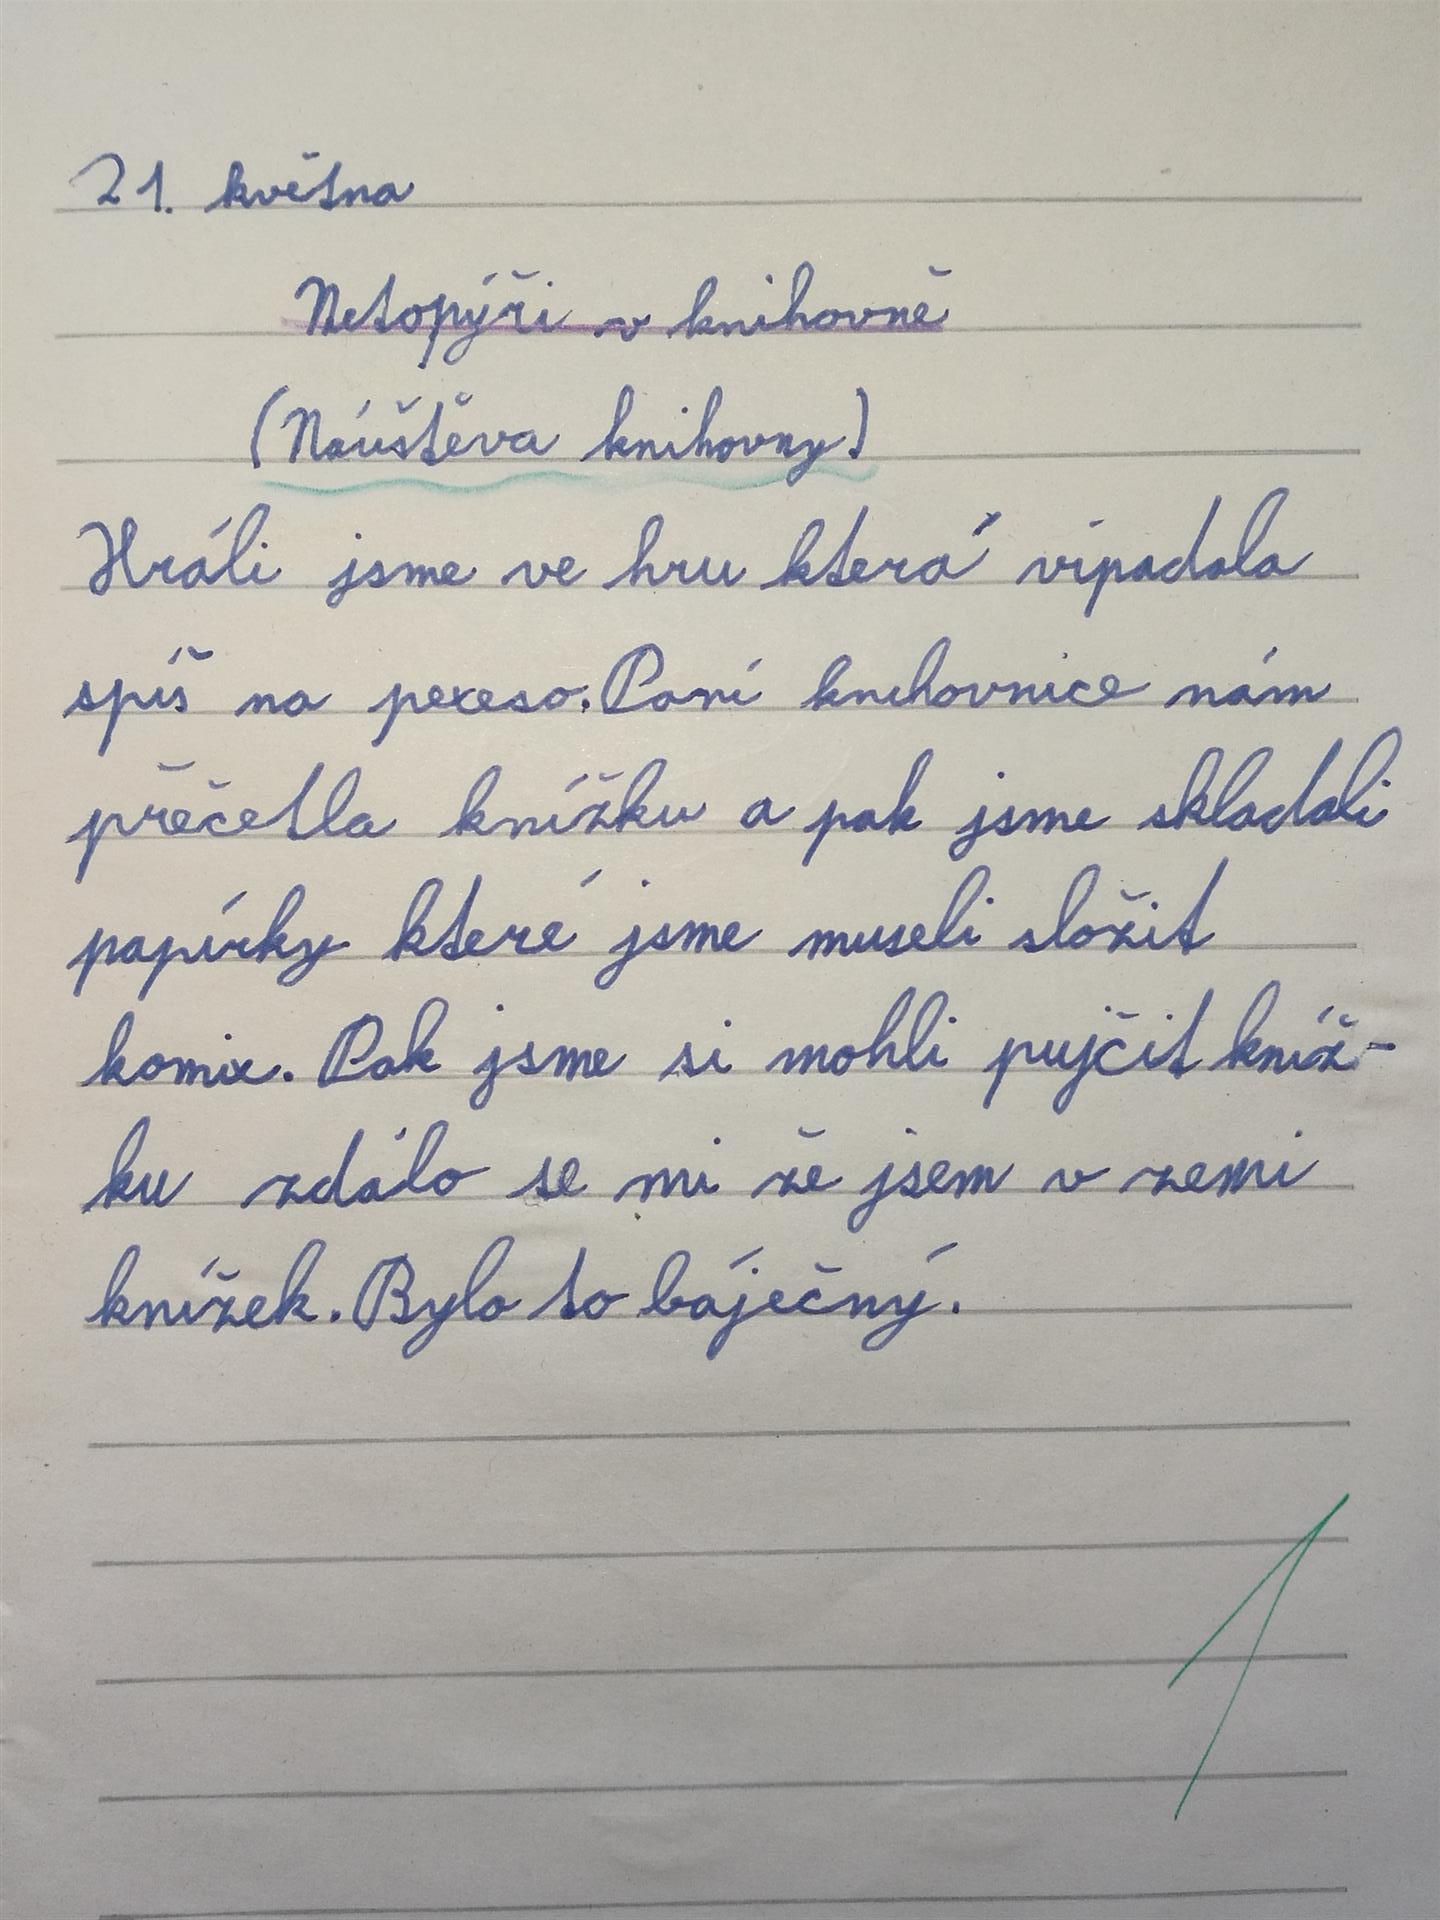 21. května
Netopýři v knihovně
(Náúštěva knihovny)
Hráli jsme ve hru která vípadala
spíš na pexeso. Paní knihovnice nám
přěčetla knížku a pak jsme skladali
papírky které jsme museli složit
komix. Pak jsme si mohli pujčit kníž-
ku zdálo se mi že jsem v zemi
knížek. Bylo to báječný.
1